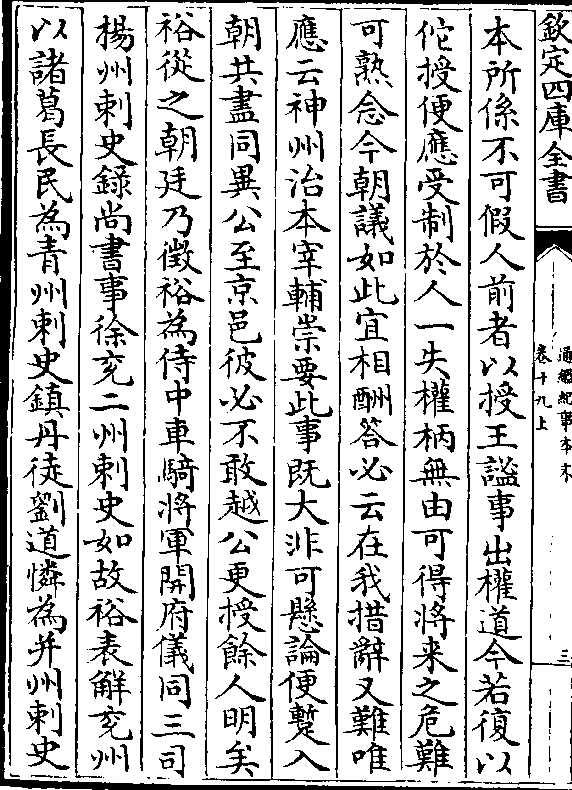 欽定四庫全書
通鑑紀事本末
卷十九上
三
本所係不可假人前者以授王謐事出權道今若復以
佗授便應受制於人一失權柄無由可得將来之危難
可熟念今朝議如此宜相酬答必云在我措辭又難唯
應云神州治本宰輔崇要此事既大非可懸論便蹔入
朝共盡同異公至京邑彼必不敢越公更授餘人明矣
裕從之朝廷乃徵裕為侍中車騎將軍開府儀同三司
楊州刺史錄尚書事徐兗二州刺史如故裕表解兗州
以諸葛長民為青州刺史鎮丹徒劉道憐為并州刺史